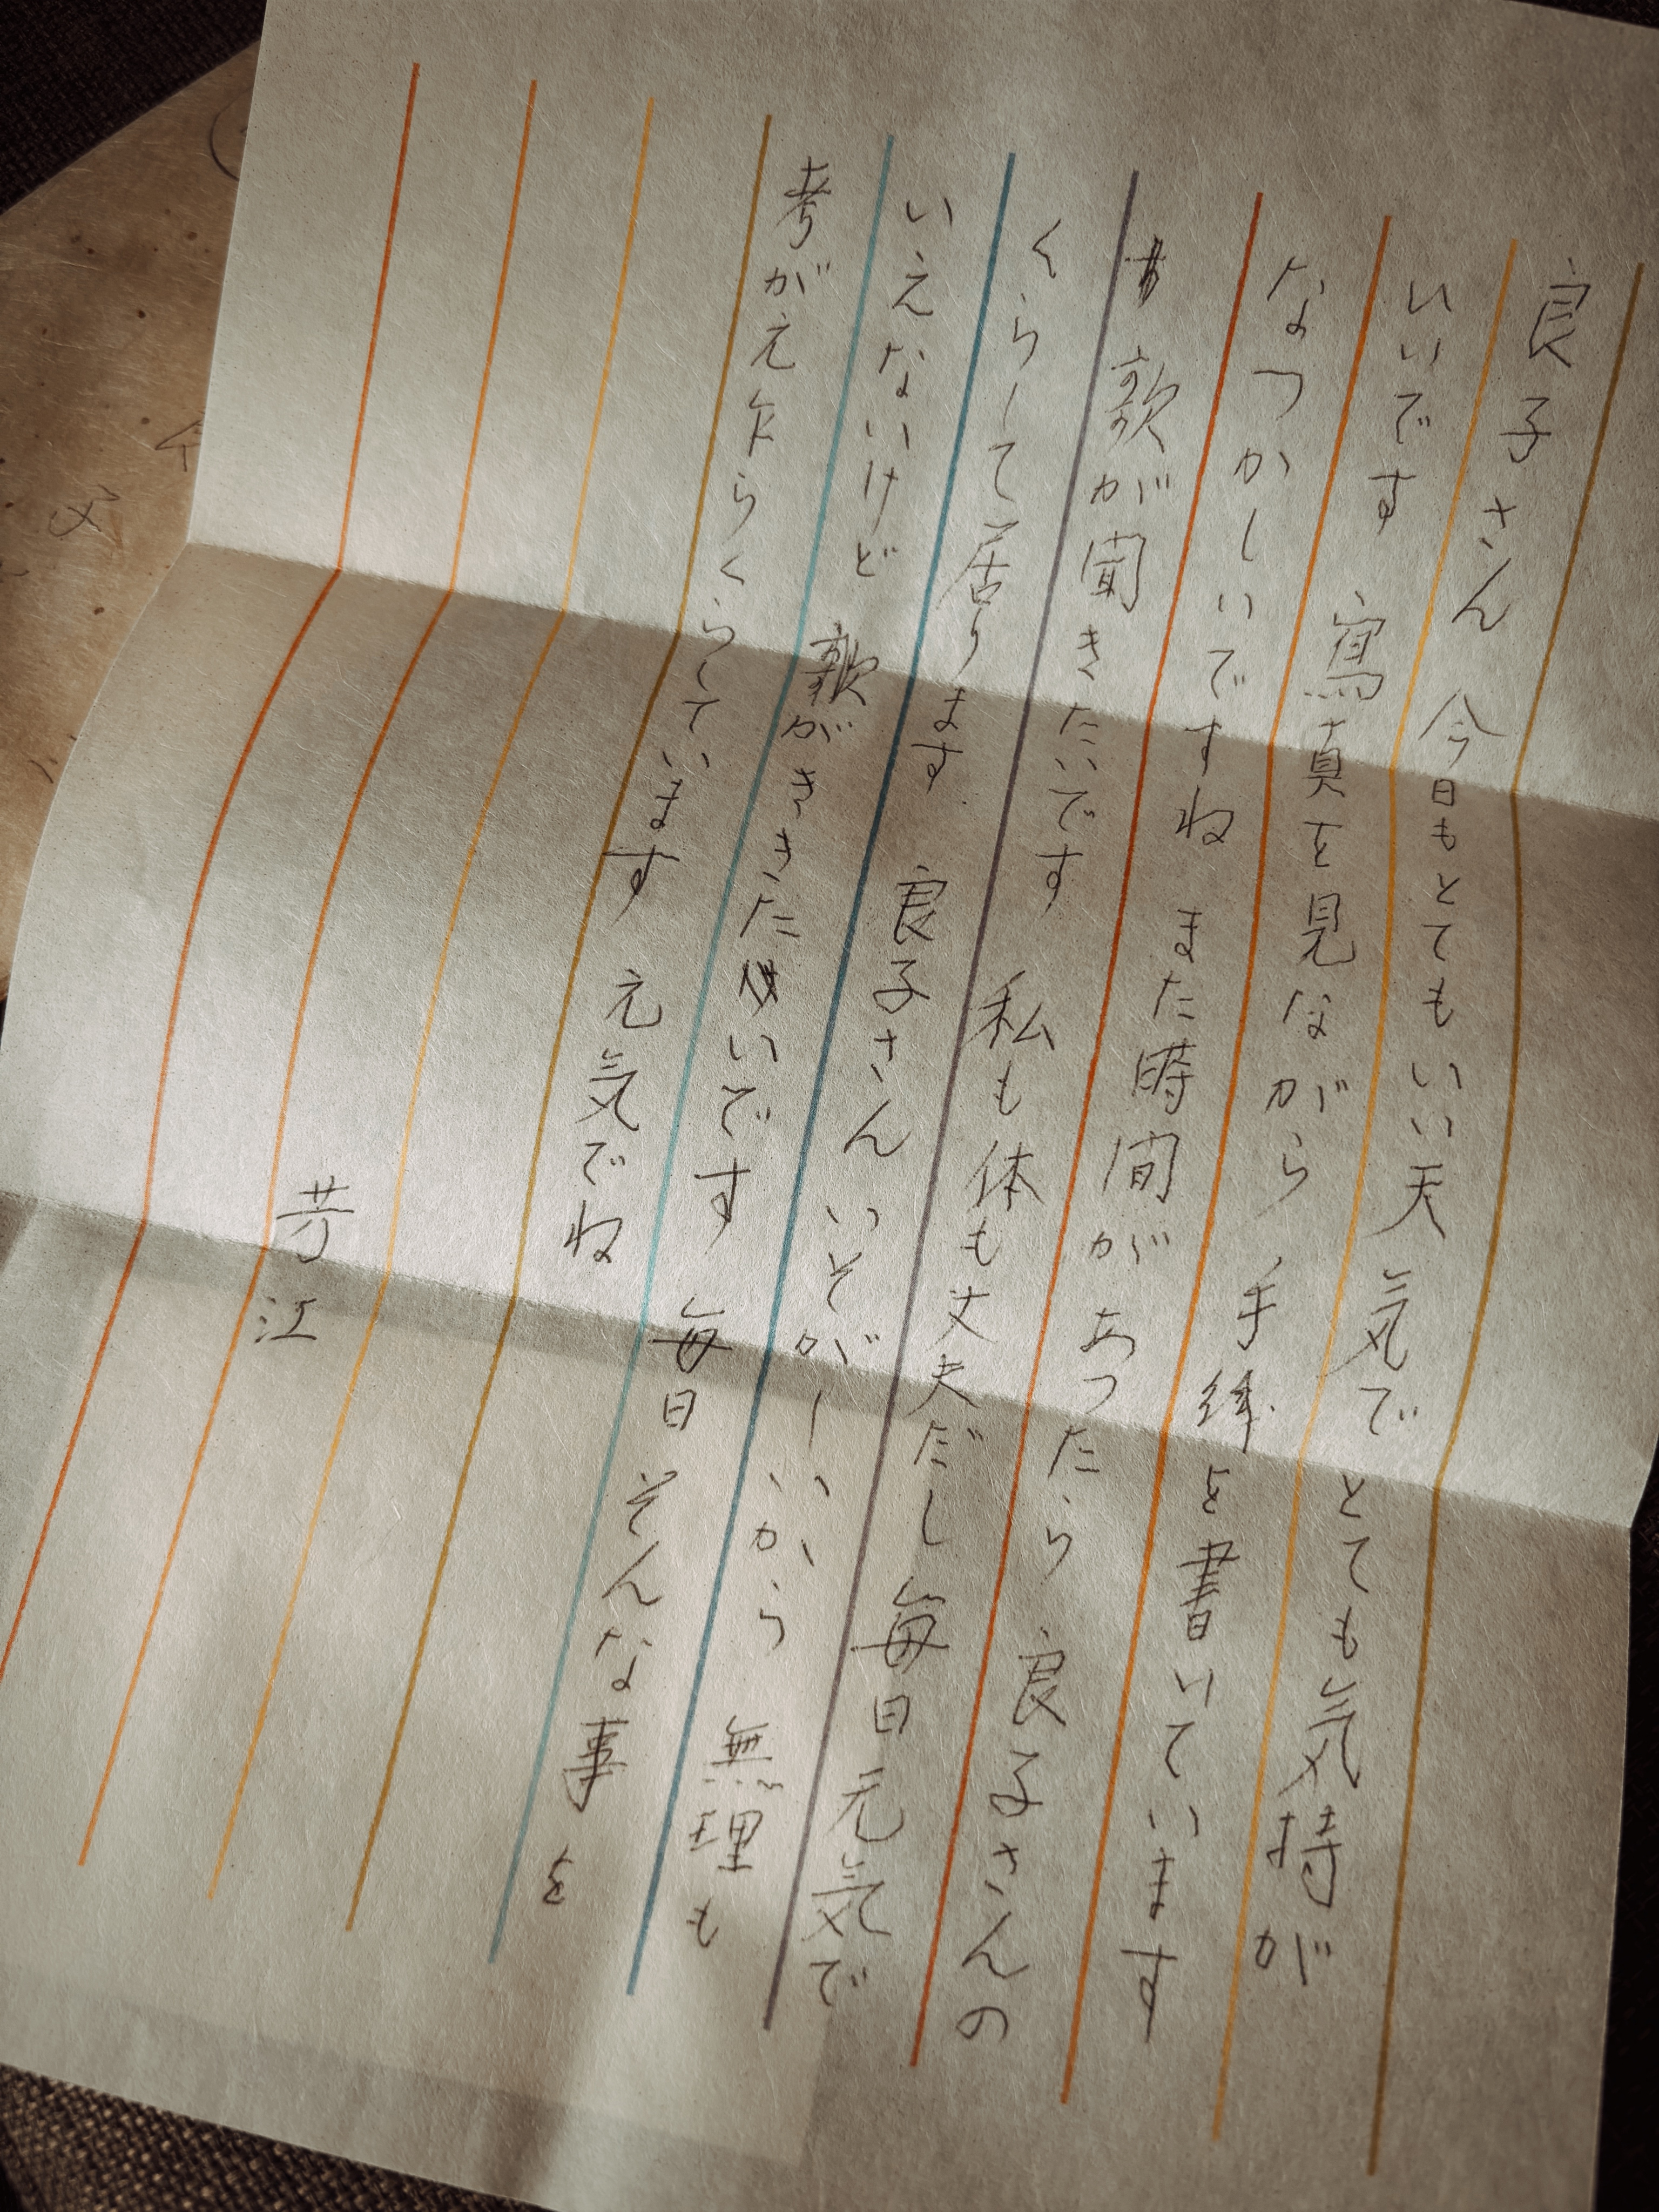 良子さん 今日もとてもいい天気で とても気持が
いいです 寫真を見ながら 手紙を書いています
なつかしいですね また時間があつたら 良子さんの
歌が聞きたいです 私も体も丈夫だし 毎日元気で
くらして居ります 良子さん いそがしいから 無理も
いえないけど 歌がきゝたいです 毎日そんな事を
考がえ乍らくらしています 元気でね
芳江